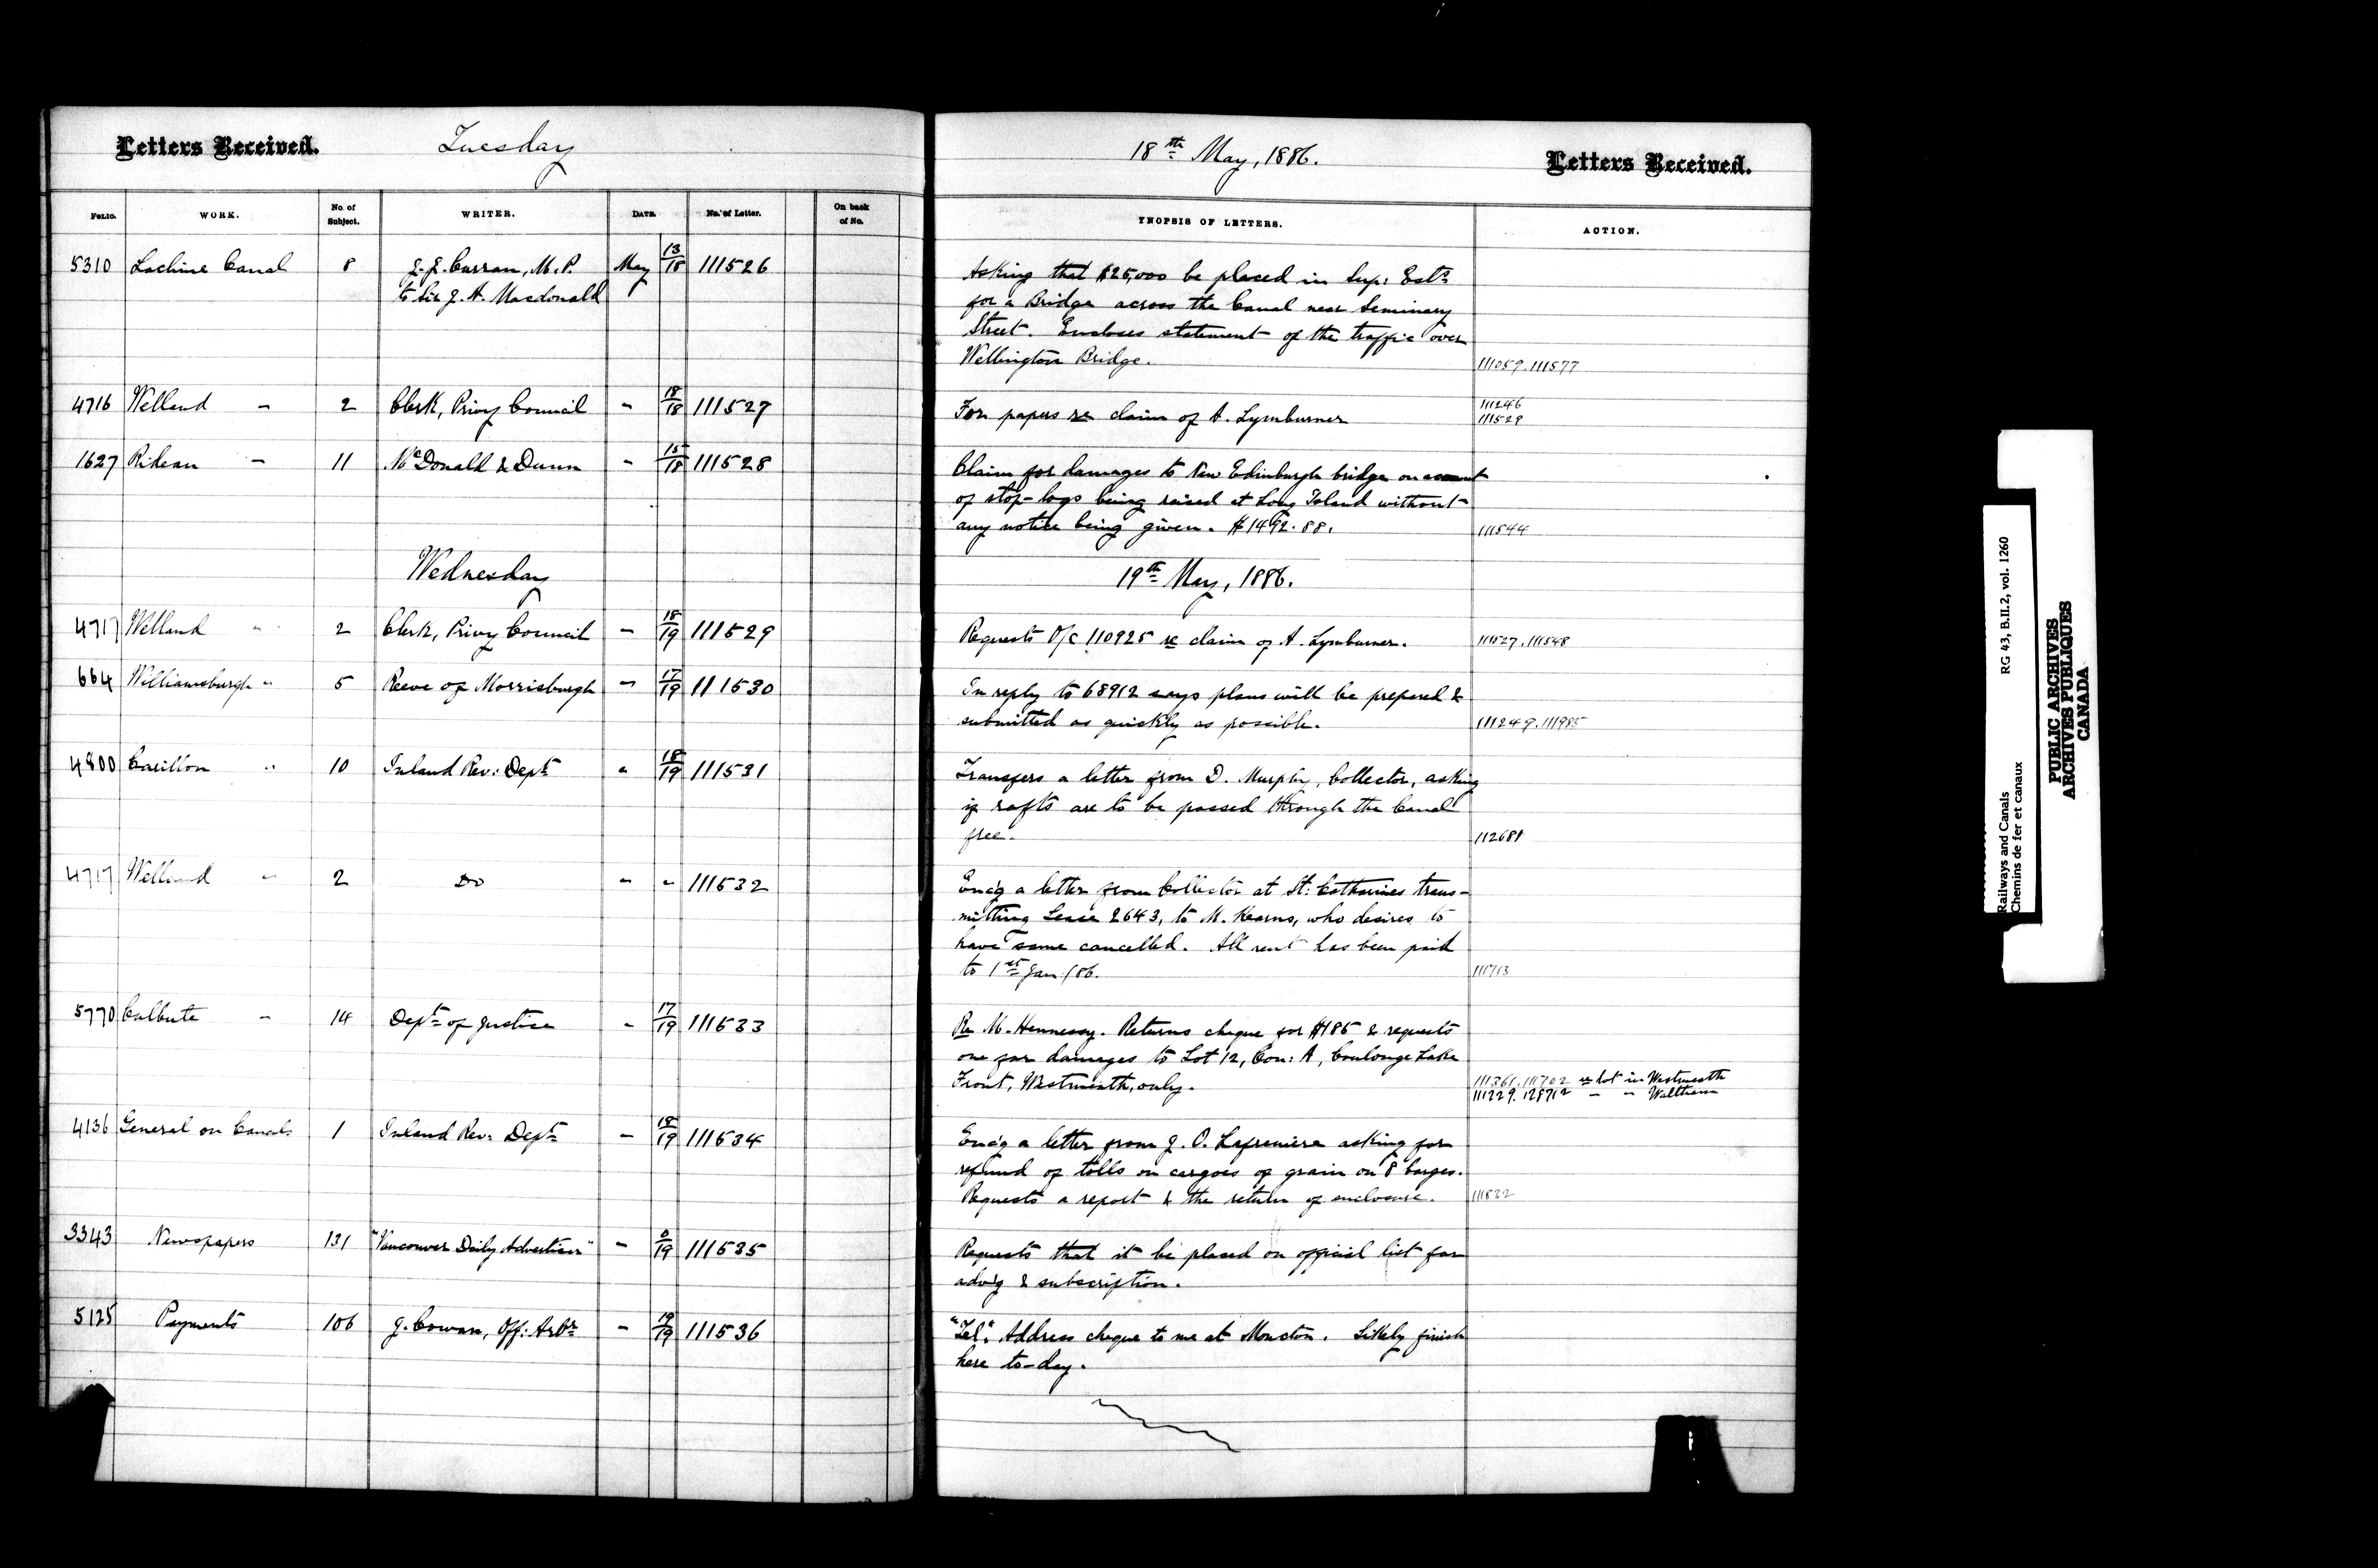 Letters Received. Tuesday
18th May, 1886. Letters Received.
FOLIO. WORK. No. of Subject. WRITER. DATE. No. of Letter. On back of No.
YNOPSIS OF LETTERS. ACTION.
5310 Lachine Canal 8 J. J. Curran, M.P. May 13/18 111526
to Sir J. A. Macdonald
Asking that $25,000 be placed in Sup: Ests
for a Bridge across the Canal near Seminary
Street. Encloses statement of the traffic over
Wellington Bridge. 111059.111577
4716 Welland - 2 Clerk, Privy Council - 18/18 111527
For papers re claim of A. Lymburner 111246
111529
1627 Rideau - 11 McDonald & Dunn - 15/18 111528
Claim for damages to New Edinburgh bridge on account
of stop-logs being raised at Long Island without
any notice being given. $1492.88. 111544
Wednesday
19th May, 1886.
4717 Welland " 2 Clerk, Privy Council - 18/19 111529
Requests O/C 110925 re claim of A. Lymburner. 111527.111548
664 Williamsburgh " 5 Reeve of Morrisburgh - 17/19 111530
In reply to 68912 says plans will be prepared &
submitted as quickly as possible. 111249.111985
4800 Carillon " 10 Inland Rev: Dept " 18/19 111531
Transfers a letter from D. Murphy, Collector, asking
if rafts are to be passed through the Canal
free. 112681
4717 Welland " 2 Do " " 111532
Enc'g a letter from Collector at St: Catharines trans-
mitting Lease 2643, to M. Kearns, who desires to
have same cancelled. All rent has been paid
to 1st Jan:/86. 111713
5770 Culbute - 14 Dept of Justice - 17/19 111533
Re M. Hennessy. Returns cheque for $185 & requests
one for damages to Lot 12, Con: A, Coulonge Lake
Front, Westmeath, only. 111361.111702 re Lot in Westmeath
111229.128712 - " Waltham
4136 General on Canals 1 Inland Rev: Dept - 18/19 111534
Enc'g a letter from J. O. Lafreniere asking for
refund of tolls on cargoes of grain on 8 barges.
Requests a report & the return of enclosure. 111832
3343 Newspapers 131 "Vancouver Daily Advertiser" - 0/19 111535
Requests that it be placed on official list for
adv'g & subscription.
5125 Payments 106 J. Cowan, Off: Arbr - 19/19 111536
"Tel". Address cheque to me at Moncton. Likely finish
here to-day.
RG 43, B.II.2, vol. 1260
Railways and Canals
Chemins de fer et canaux
PUBLIC ARCHIVES
ARCHIVES PUBLIQUES
CANADA